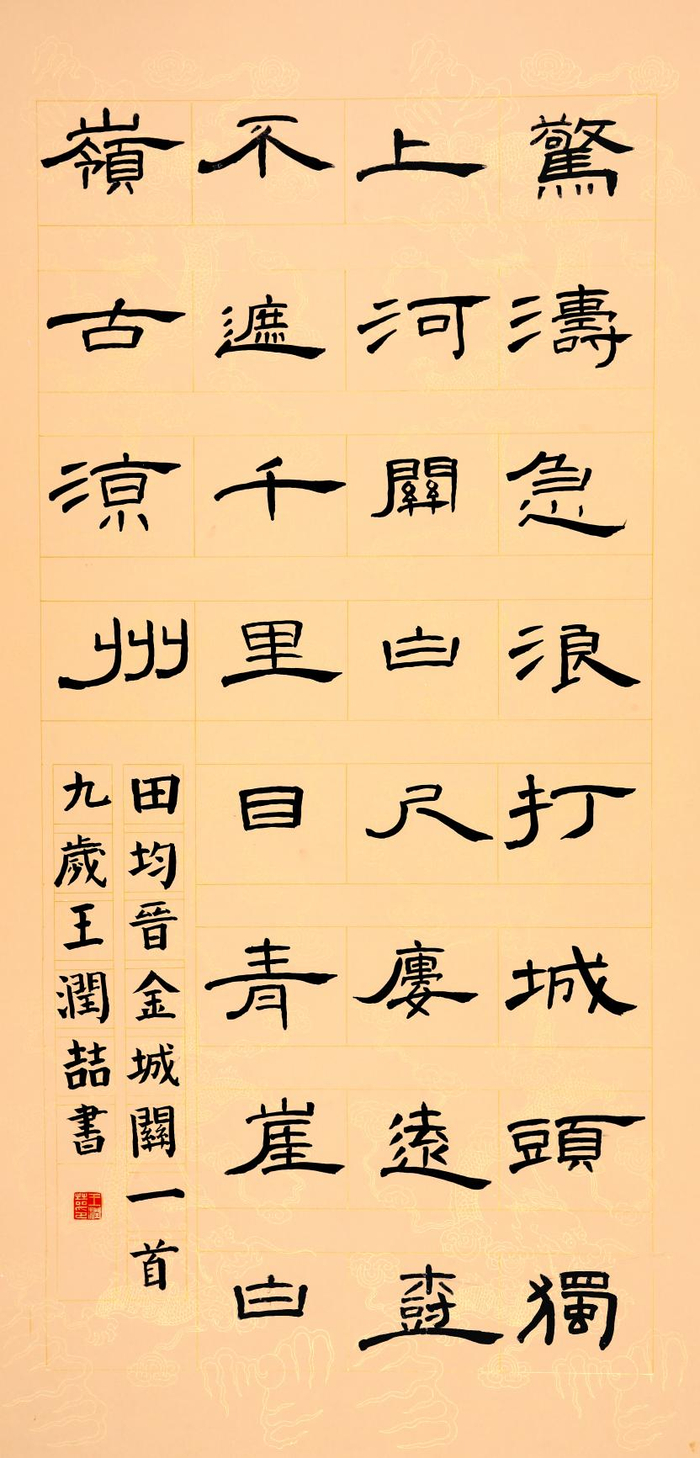 驚濤急浪打城頭獨
上河關白尺廔遠樹
不遮千里目青崖白
嶺古涼州
田均晉金城關一首
九歲王潤喆書